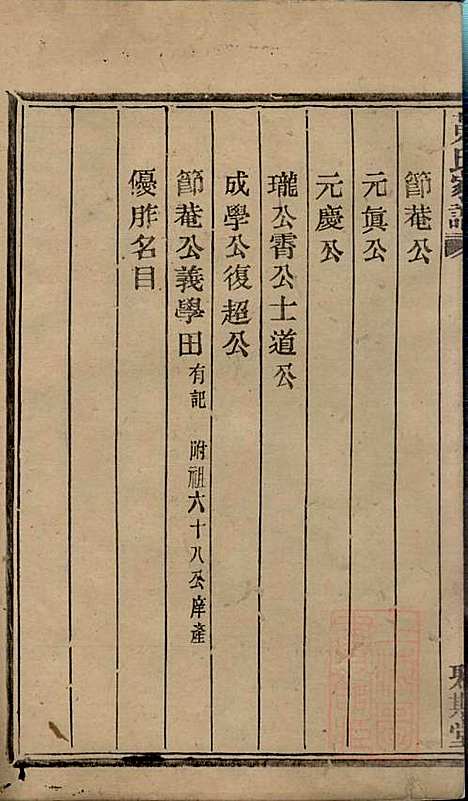 節菴公
元眞公
元慶公
瓏公霄公士道公
成學公復超公
節菴公義學田 有記 附祖六十八公庠產
優胙名目